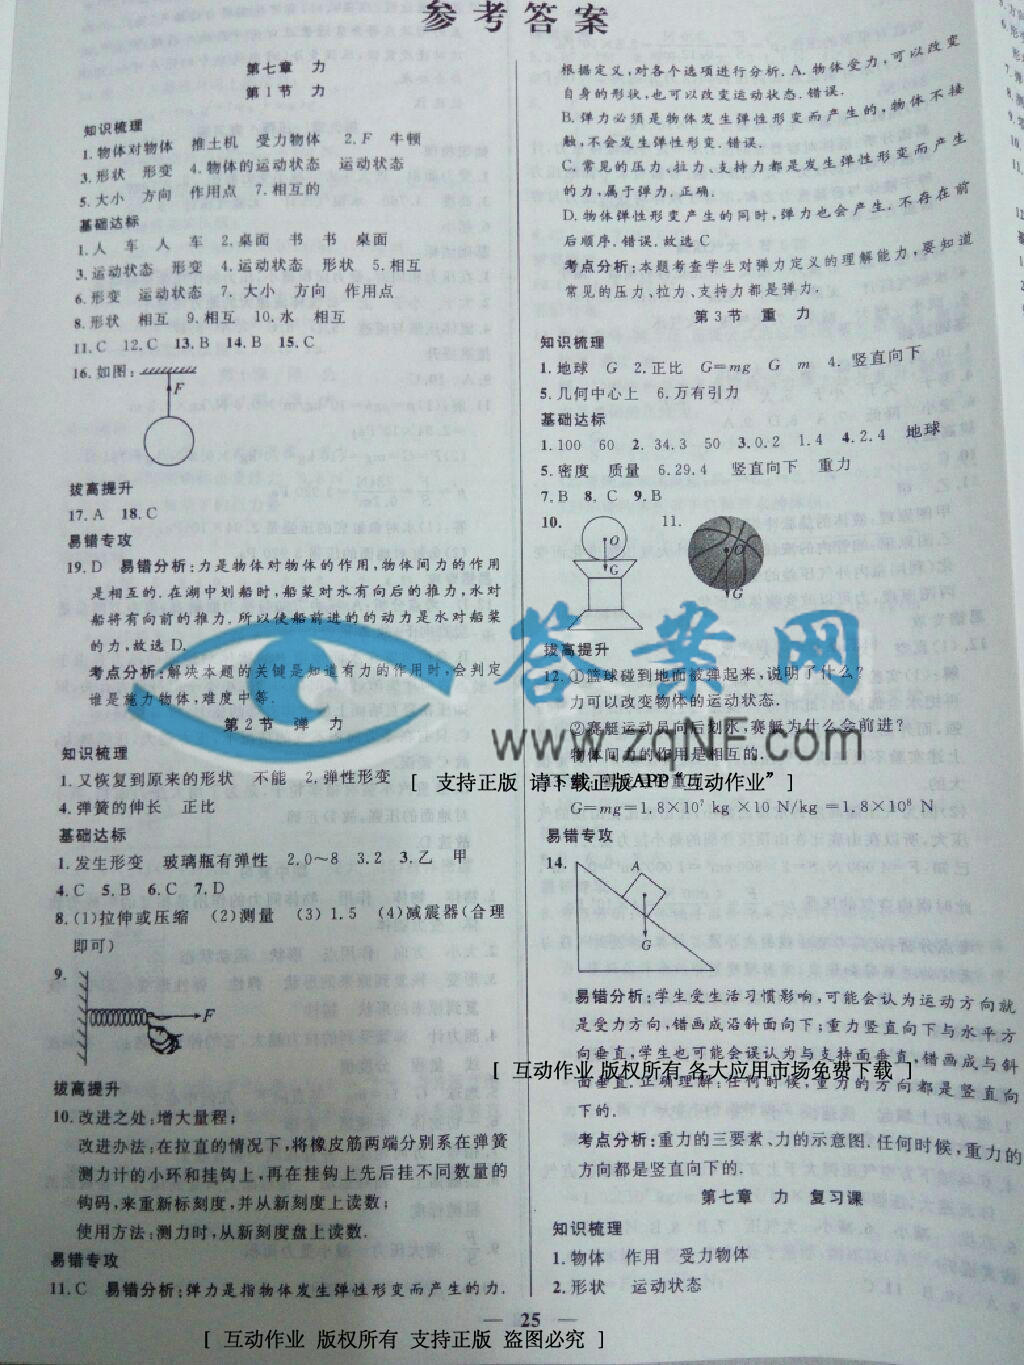 参考答案
第七章 力
第1节 力
知识梳理
1.物体对物体 推土机 受力物体 2.F 牛顿
3.形状 形变 4.物体的运动状态 运动状态
5.大小 方向 作用点 7.相互的
基础达标
1.人 车 人 车 2.桌面 书 书 桌面
3.运动状态 形变 4.运动状态 形状 5.相互
6.形变 运动状态 7.大小 方向 作用点
8.形状 相互 9.相互 10.水 相互
11.C 12.C 13.B 14.B 15.C
16.如图:
F
拔高提升
17.A 18.C
易错专攻
19.D 易错分析:力是物体对物体的作用,物体间力的作用
是相互的.在湖中划船时,船桨对水有向后的推力,水对
船将有向前的推力.所以使船前进的的动力是水对船桨
的力,故选D.
考点分析:解决本题的关键是知道有力的作用时,会判定
谁是施力物体,难度中等.
第2节 弹 力
知识梳理
1.又恢复到原来的形状 不能 2.弹性形变
4.弹簧的伸长 正比
基础达标
1.发生形变 玻璃瓶有弹性 2.0～8 3.2 3.乙 甲
4.C 5.B 6.C 7.D
8.(1)拉伸或压缩 (2)测量 (3)1.5 (4)减震器(合理
即可)
9.
F
拔高提升
10.改进之处:增大量程;
改进办法:在拉直的情况下,将橡皮筋两端分别系在弹簧
测力计的小环和挂钩上,再在挂钩上先后挂不同数量的
钩码,来重新标刻度,并从新刻度上读数;
使用方法:测力时,从新刻度盘上读数.
易错专攻
11.C 易错分析:弹力是指物体发生弹性形变而产生的力.
根据定义,对各个选项进行分析.A.物体受力,可以改变
自身的形状,也可以改变运动状态.错误.
B.弹力必须是物体发生弹性形变而产生的,物体不接
触,不会发生弹性形变.错误.
C.常见的压力、拉力、支持力都是发生弹性形变而产生
的力,属于弹力.正确.
D.物体弹性形变产生的同时,弹力也会产生.不存在前
后顺序.错误.故选C
考点分析:本题考查学生对弹力定义的理解能力,要知道
常见的压力、拉力、支持力都是弹力.
第3节 重 力
知识梳理
1.地球 G 2.正比 G=mg G m 4.竖直向下
5.几何中心上 6.万有引力
基础达标
1.100 60 2.34.3 50 3.0.2 1.4 4.2.4 地球
5.密度 质量 6.29.4 竖直向下 重力
7.B 8.C 9.B
10. 11.
O
G
O
G
拔高提升
12.①篮球碰到地面被弹起来,说明了什么?
力可以改变物体的运动状态.
②赛艇运动员向后划水,赛艇为什么会前进?
物体间力的作用是相互的.
[ 支持正版 请下载正版APP“互动作业” ]
G=mg=1.8×10⁷ kg×10 N/kg=1.8×10⁸ N
易错专攻
14.
A
G
易错分析:学生受生活习惯影响,可能会认为运动方向就
是受力方向,错画成沿斜面向下;重力竖直向下与水平方
向垂直,学生也可能会误认为与支持面垂直,错画成与斜
[ 互动作业 版权所有 各大应用市场免费下载 ]
面垂直.正确理解:任何时候,重力的方向都是竖直向
下的.
考点分析:重力的三要素、力的示意图.任何时候,重力的
方向都是竖直向下的.
第七章 力 复习课
知识梳理
1.物体 作用 受力物体
2.形状 运动状态
25
[ 互动作业 版权所有 支持正版 盗图必究 ]
答案网
www.zqNF.com